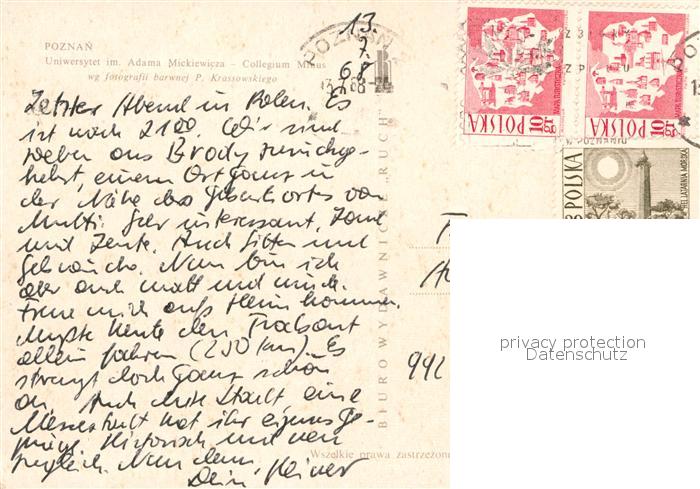 POZNAŃ
Uniwersytet im. Adama Mickiewicza – Collegium Minus
wg fotografii barwnej P. Krassowskiego
13.
7.
68
Letzter Abend in Polen. Es
ist nach 21 00. Wir sind
soeben aus Brody zurückge-
kehrt, einem Ort ganz in
der Nähe des Geburtsortes von
Mutti. Sehr interessant, Land
und Leute. Auch Sitten und
Gebräuche. Nun bin ich
aber auch matt und müde.
Freue mich aufs Heimkommen.
Mußte heute den Trabant
allein fahren (250 km). Es
strengt doch ganz schön
an. Auch diese Stadt, eine
Messestadt hat ihr eigenes Ge-
präge. Historisch und neu
zugleich. Nun denn,
Dein Heiner
BIURO WYDAWNICZE „RUCH"
Wszelkie prawa zastrzeżone
POLSKA
10 GR
POLSKA
10 GR
POLSKA
HEL, LATARNIA MORSKA
privacy protection
Datenschutz